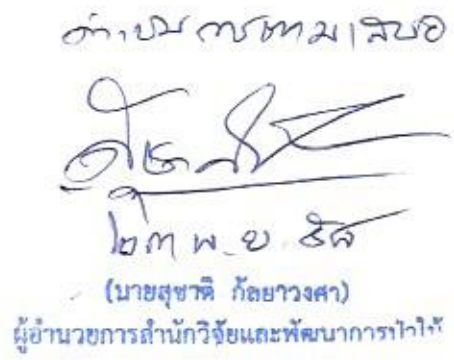 ดำเนินการตามเสนอ
๒๓ พ.ย. ๕๘
(นายสุชาติ กัลยาวงศา)
ผู้อำนวยการสำนักวิจัยและพัฒนาการป่าไม้